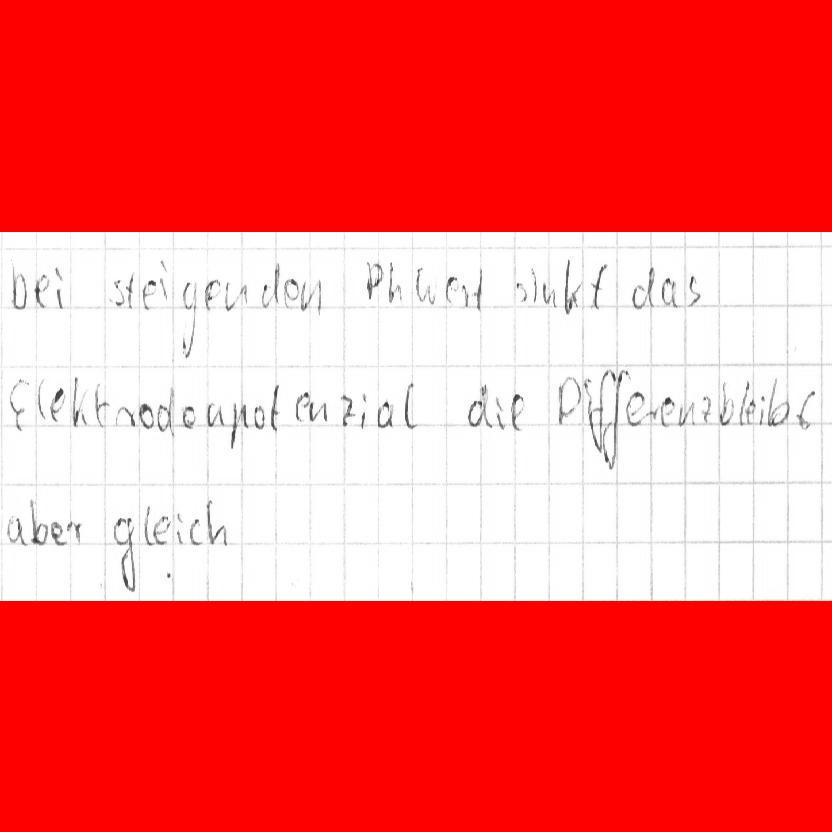 bei steigenden Ph Wert sinkt das
Elektrodenpotenzial die Differenz bleibt
aber gleich